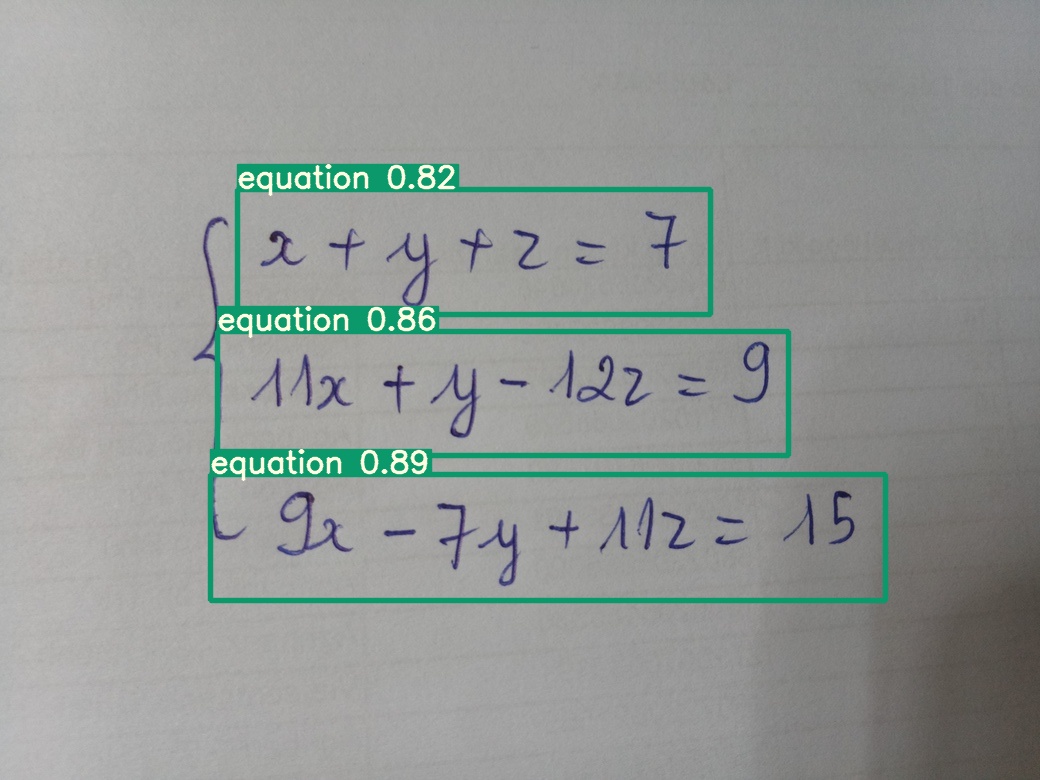 equation 0.82
x + y + z = 7
equation 0.86
11x + y - 12z = 9
equation 0.89
9x - 7y + 11z = 15